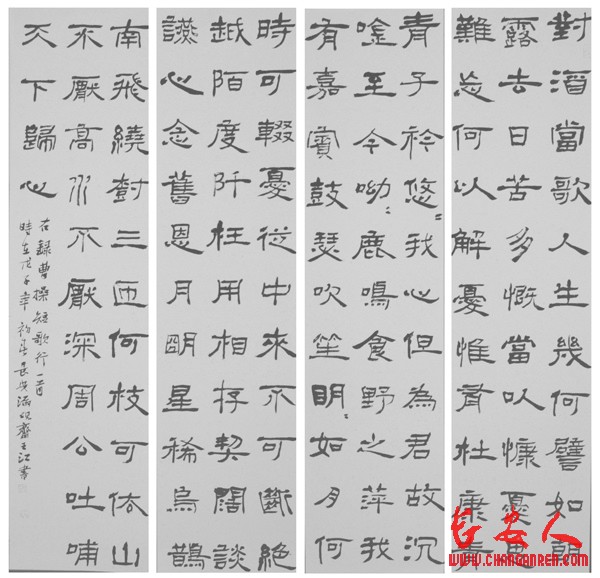 對酒當歌人生幾何譬如朝
露去日苦多慨當以慷憂思
難忘何以解憂惟有杜康青
青子衿悠〻我心但為君故沉
唫至今呦〻鹿鳴食野之萍我
有嘉賓鼓瑟吹笙明〻如月何
時可輟憂從中來不可斷絕
越陌度阡枉用相存契闊談
讌心念舊恩月明星稀烏鵲
南飛繞樹三匝何枝可依山
不厭高水不厭深周公吐哺
天下歸心
右錄曹操短歌行一首
時在戊子年初長安滿硯齋王江書
长安人
WWW.CHANGANREN.COM